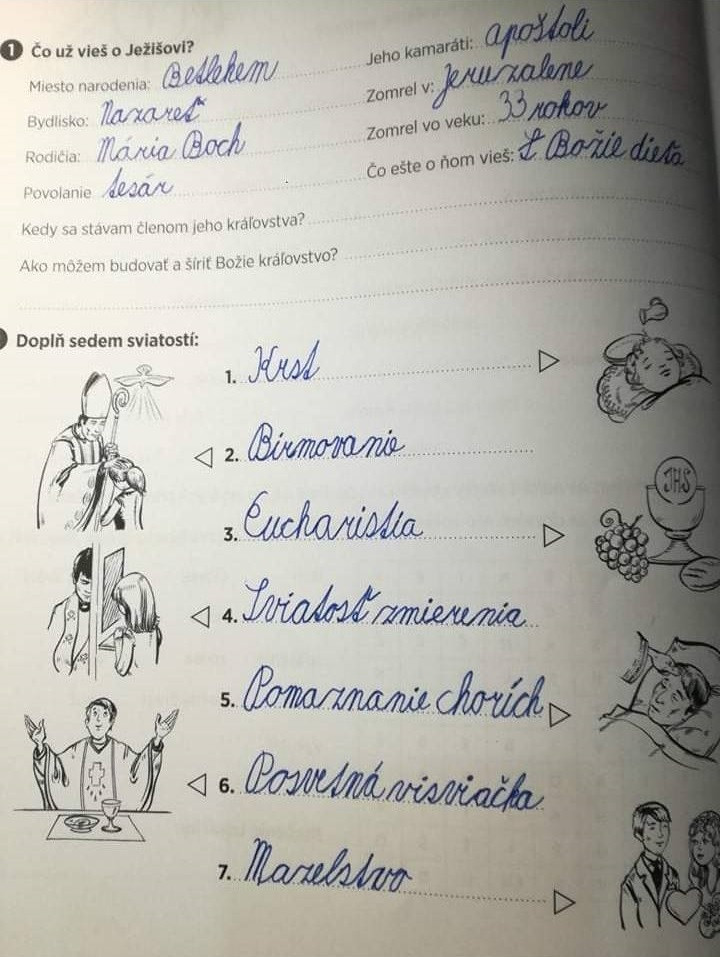 1 Čo už vieš o Ježišovi?
Miesto narodenia: Betlehem
Bydlisko: Nazaret
Rodičia: Mária Boch
Povolanie tesár
Jeho kamaráti: apoštoli
Zomrel v: Jeruzaleme
Zomrel vo veku: 33 rokov
Čo ešte o ňom vieš: Božie dieťa
Kedy sa stávam členom jeho kráľovstva?
Ako môžem budovať a šíriť Božie kráľovstvo?
Doplň sedem sviatostí:
1. Krst
2. Birmovanie
3. Eucharistia
JHS
4. Sviatosť zmierenia
5. Pomaznanie chorích
6. Posvetná visviačka
7. Mazelstvo